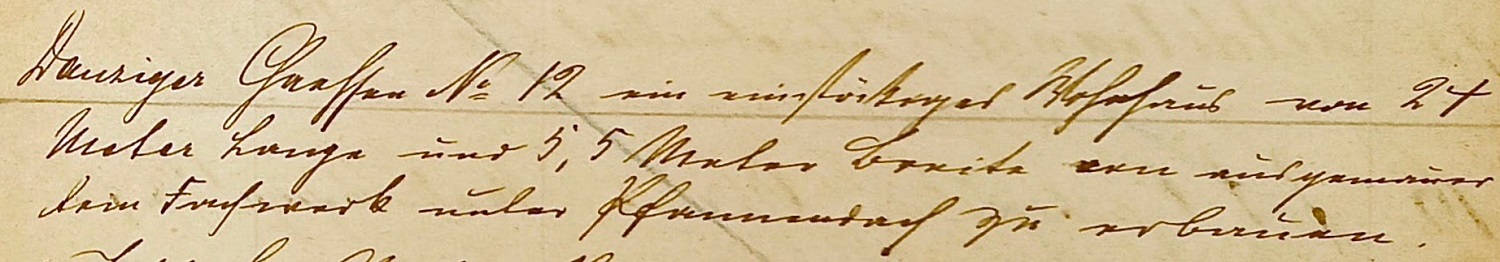 Danziger Chaussee No 12 ein einstöckiges Wohnhaus von 24
Meter Länge und 5,5 Meter Breite von ausgemauer
tem Fachwerk unter Pfannendach zu erbauen.